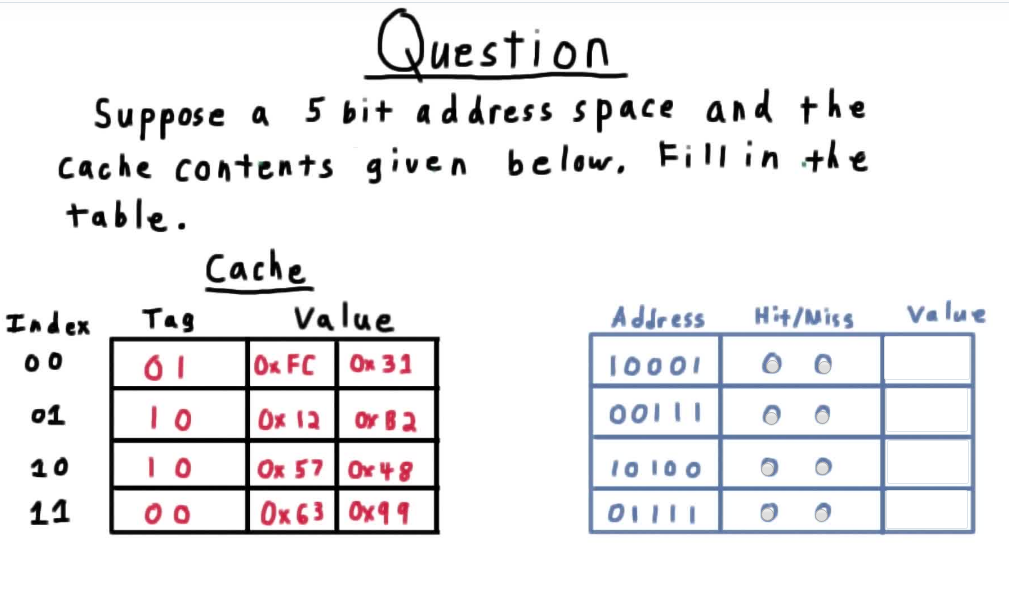 Question
Suppose a 5 bit address space and the
cache contents given below. Fill in the
table.
Cache
Index Tag Value
00 01 0xFC 0x31
01 10 0x12 0xB2
10 10 0x57 0x48
11 00 0x63 0x99
Address Hit/Miss Value
10001
00111
10100
01111